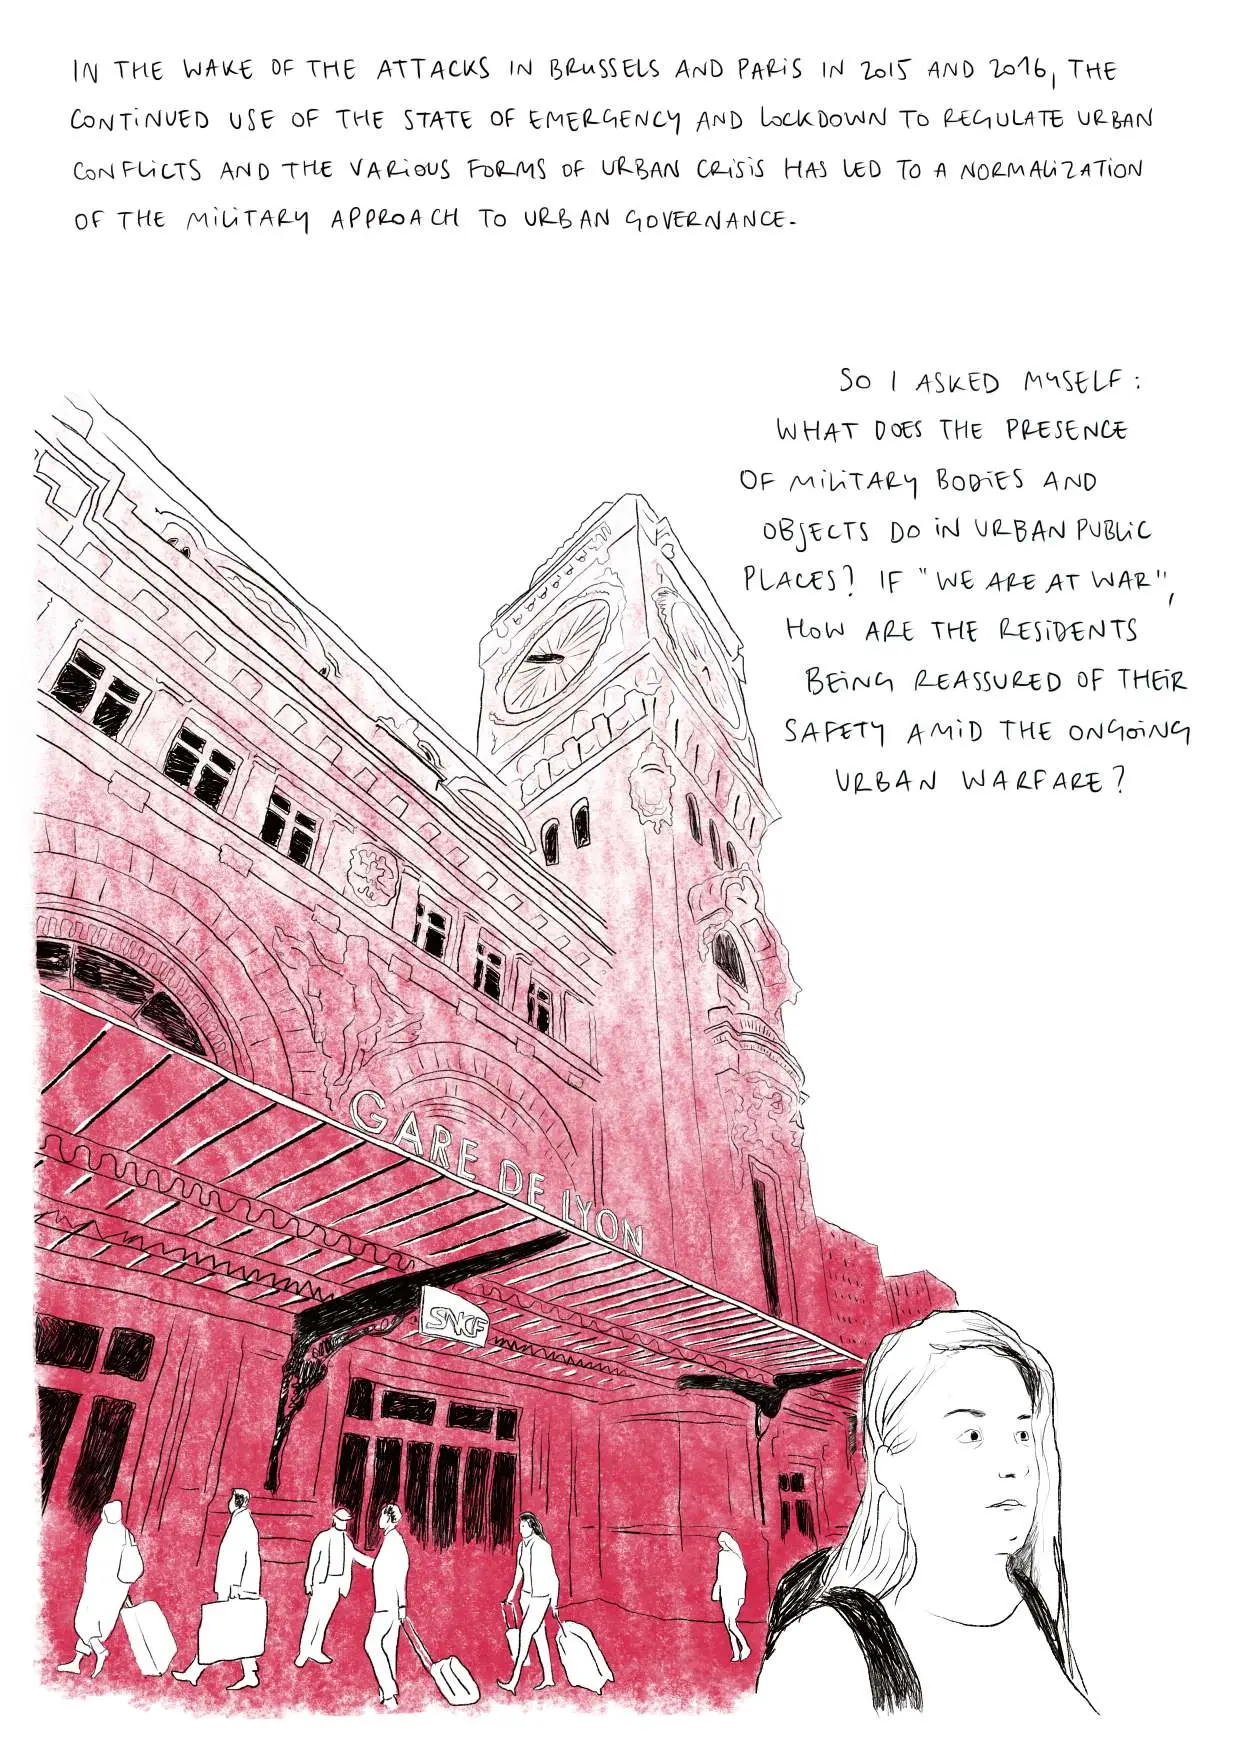 IN THE WAKE OF THE ATTACKS IN BRUSSELS AND PARIS IN 2015 AND 2016, THE
CONTINUED USE OF THE STATE OF EMERGENCY AND LOCKDOWN TO REGULATE URBAN
CONFLICTS AND THE VARIOUS FORMS OF URBAN CRISIS HAS LED TO A NORMALIZATION
OF THE MILITARY APPROACH TO URBAN GOVERNANCE.
SO I ASKED MYSELF:
WHAT DOES THE PRESENCE
OF MILITARY BODIES AND
OBJECTS DO IN URBAN PUBLIC
PLACES? IF "WE ARE AT WAR",
HOW ARE THE RESIDENTS
BEING REASSURED OF THEIR
SAFETY AMID THE ONGOING
URBAN WARFARE?
GARE DE LYON
SNCF